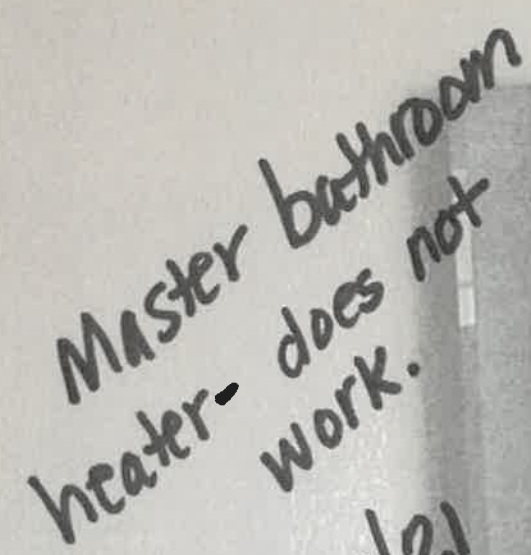 Master bathroom
heater does not
work.